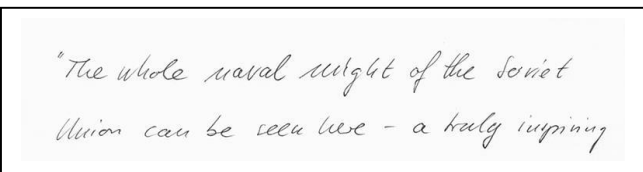 "The whole naval might of the Soviet
Union can be seen here – a truly inspiring